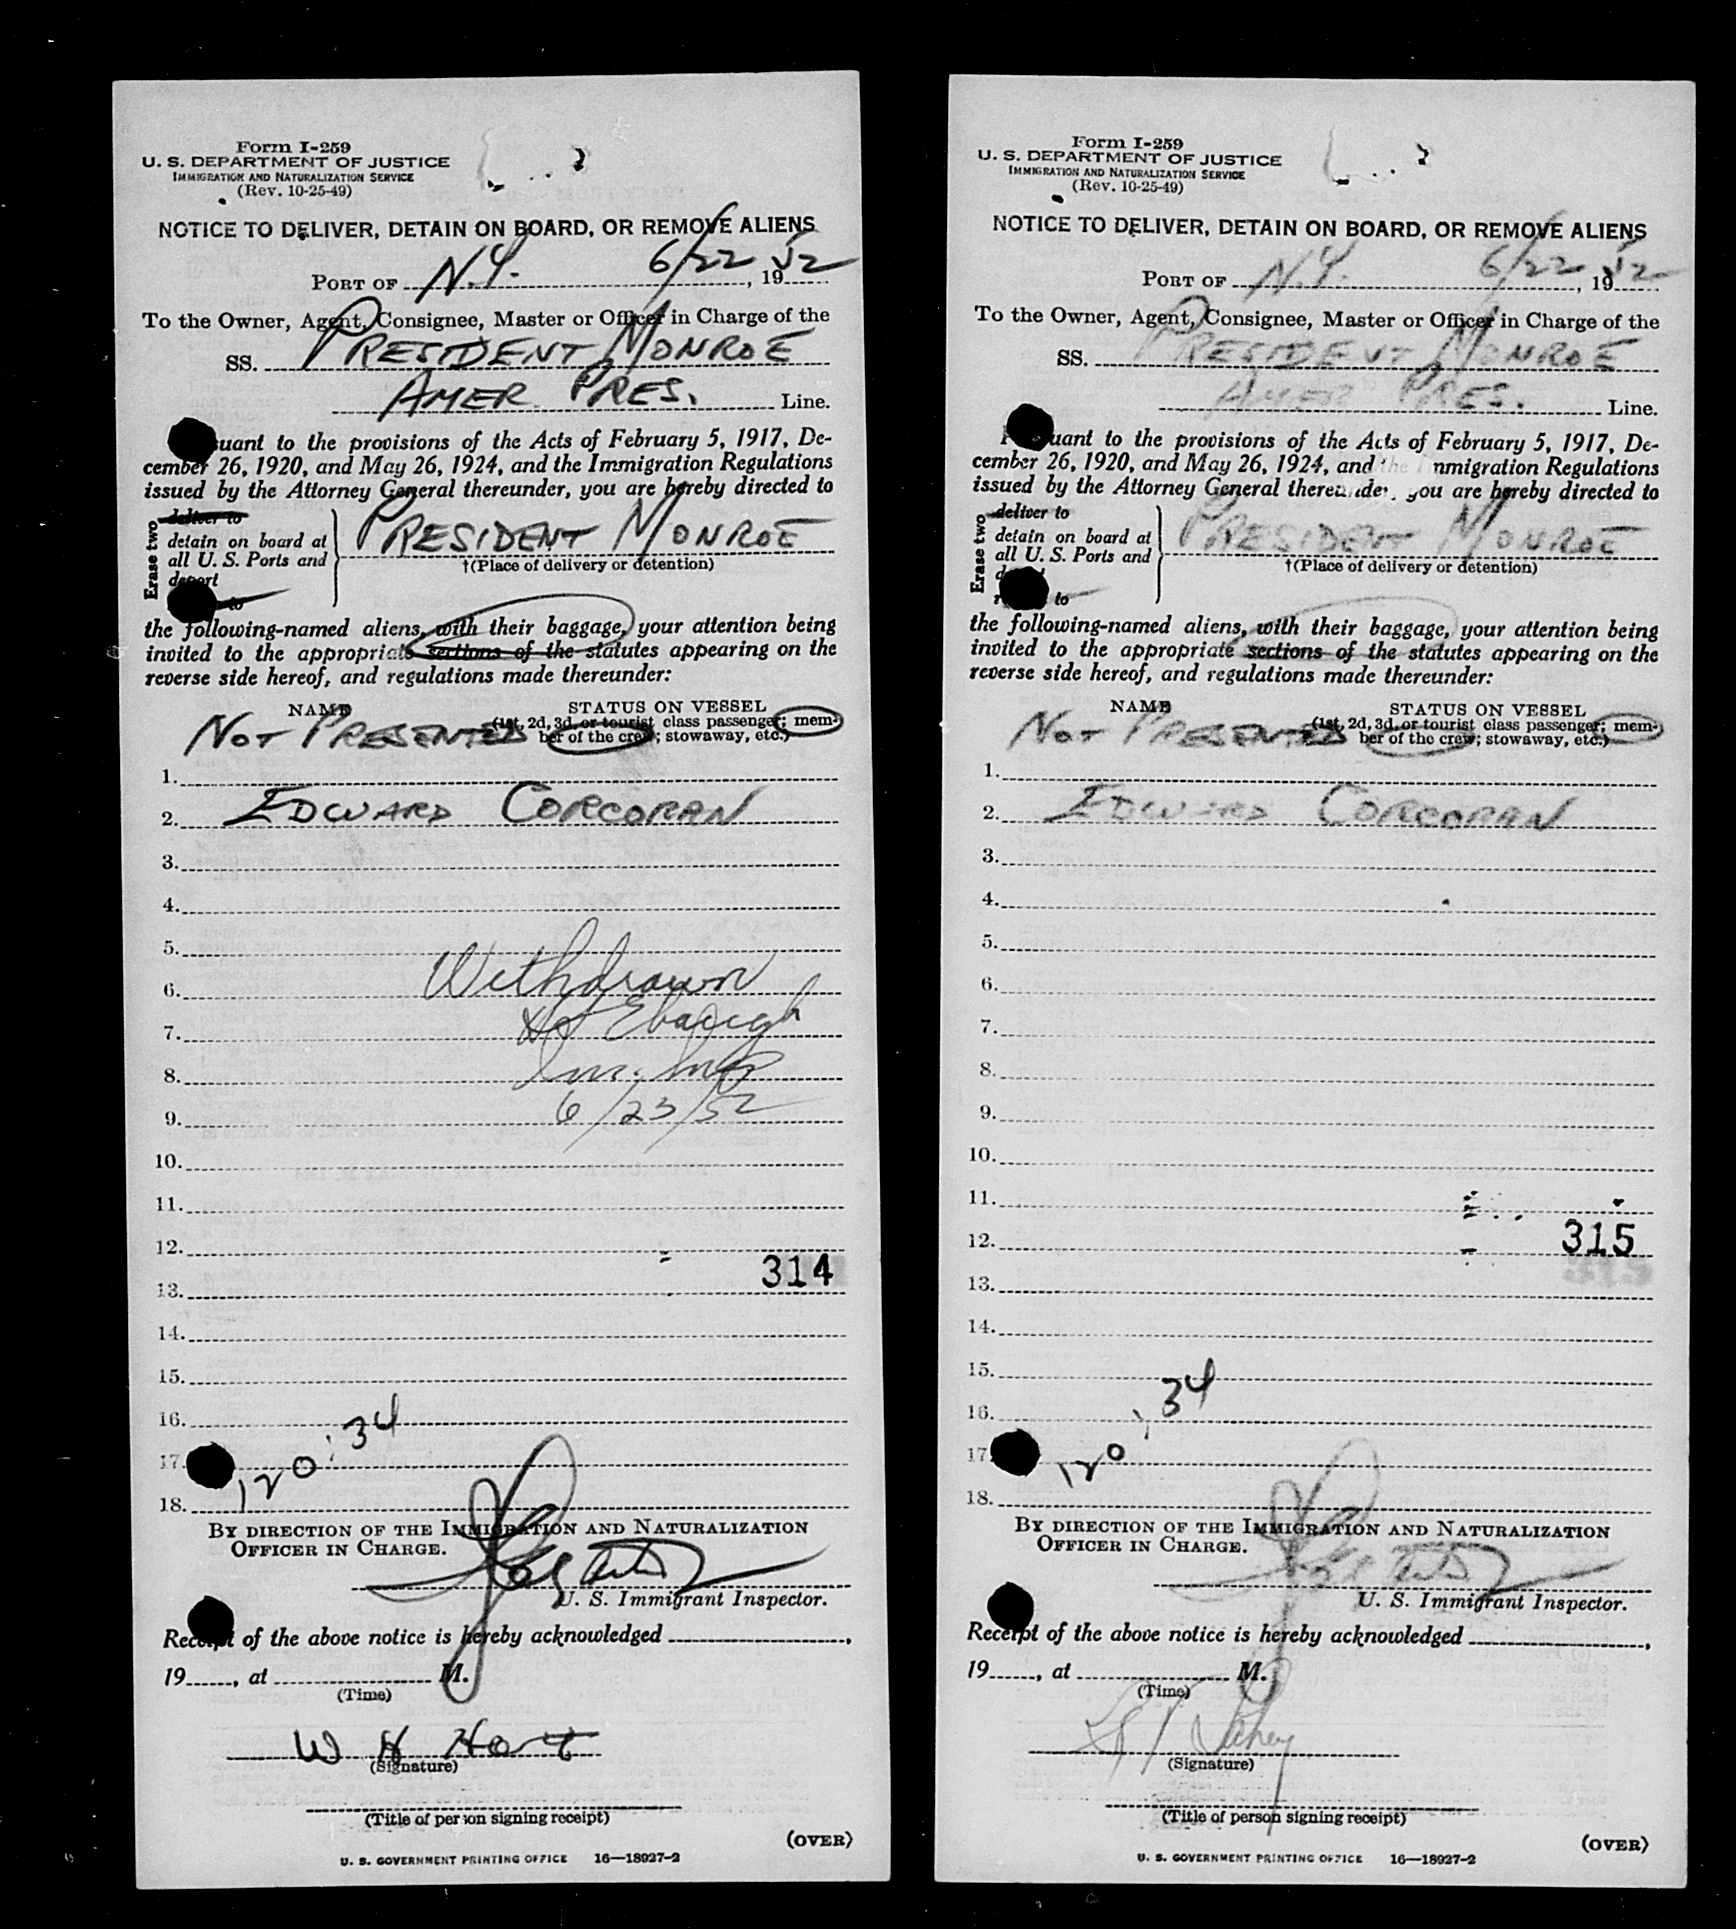 Form I-259
U. S. DEPARTMENT OF JUSTICE
IMMIGRATION AND NATURALIZATION SERVICE
(Rev. 10-25-49)
NOTICE TO DELIVER, DETAIN ON BOARD, OR REMOVE ALIENS
PORT OF N.Y. 6/22, 1952
To the Owner, Agent, Consignee, Master or Officer in Charge of the
SS. PRESIDENT MONROE
AMER PRES. Line.
suant to the provisions of the Acts of February 5, 1917, De-
cember 26, 1920, and May 26, 1924, and the Immigration Regulations
issued by the Attorney General thereunder, you are hereby directed to
Erase two
deliver to
detain on board at
all U. S. Ports and
deport
to
PRESIDENT MONROE
†(Place of delivery or detention)
the following-named aliens, with their baggage, your attention being
invited to the appropriate sections of the statutes appearing on the
reverse side hereof, and regulations made thereunder:
NAME STATUS ON VESSEL
(1st, 2d, 3d, or tourist class passenger; mem-
ber of the crew; stowaway, etc.)
NOT PRESENTED
1.
2. EDWARD CORCORAN
3.
4.
5.
6. Withdrawn
7. Ebaugh
8. Im. Insp
9. 6/23/52
10.
11.
12.
314
13.
14.
15.
16. 34
17.
18. 120
BY DIRECTION OF THE IMMIGRATION AND NATURALIZATION
OFFICER IN CHARGE.
U. S. Immigrant Inspector.
Receipt of the above notice is hereby acknowledged
19, at M.
(Time)
W H Hart
(Signature)
(Title of person signing receipt)
(OVER)
U. S. GOVERNMENT PRINTING OFFICE 16—18927-2
Form I-259
U. S. DEPARTMENT OF JUSTICE
IMMIGRATION AND NATURALIZATION SERVICE
(Rev. 10-25-49)
NOTICE TO DELIVER, DETAIN ON BOARD, OR REMOVE ALIENS
PORT OF N.Y. 6/22, 1952
To the Owner, Agent, Consignee, Master or Officer in Charge of the
SS. PRESIDENT MONROE
AMER PRES. Line.
uant to the provisions of the Acts of February 5, 1917, De-
cember 26, 1920, and May 26, 1924, and the Immigration Regulations
issued by the Attorney General thereunder, you are hereby directed to
Erase two
deliver to
detain on board at
all U. S. Ports and
to
PRESIDENT MONROE
†(Place of delivery or detention)
the following-named aliens, with their baggage, your attention being
invited to the appropriate sections of the statutes appearing on the
reverse side hereof, and regulations made thereunder:
NAME STATUS ON VESSEL
(1st, 2d, 3d, or tourist class passenger; mem-
ber of the crew; stowaway, etc.)
NOT PRESENTED
1.
2. EDWARD CORCORAN
3.
4.
5.
6.
7.
8.
9.
10.
11.
12. 315
13.
14.
15.
34
16.
17.
120
18.
BY DIRECTION OF THE IMMIGRATION AND NATURALIZATION
OFFICER IN CHARGE.
U. S. Immigrant Inspector.
Receipt of the above notice is hereby acknowledged
19, at M.
(Time)
(Signature)
(Title of person signing receipt)
(OVER)
U. S. GOVERNMENT PRINTING OFFICE 16—18927-2